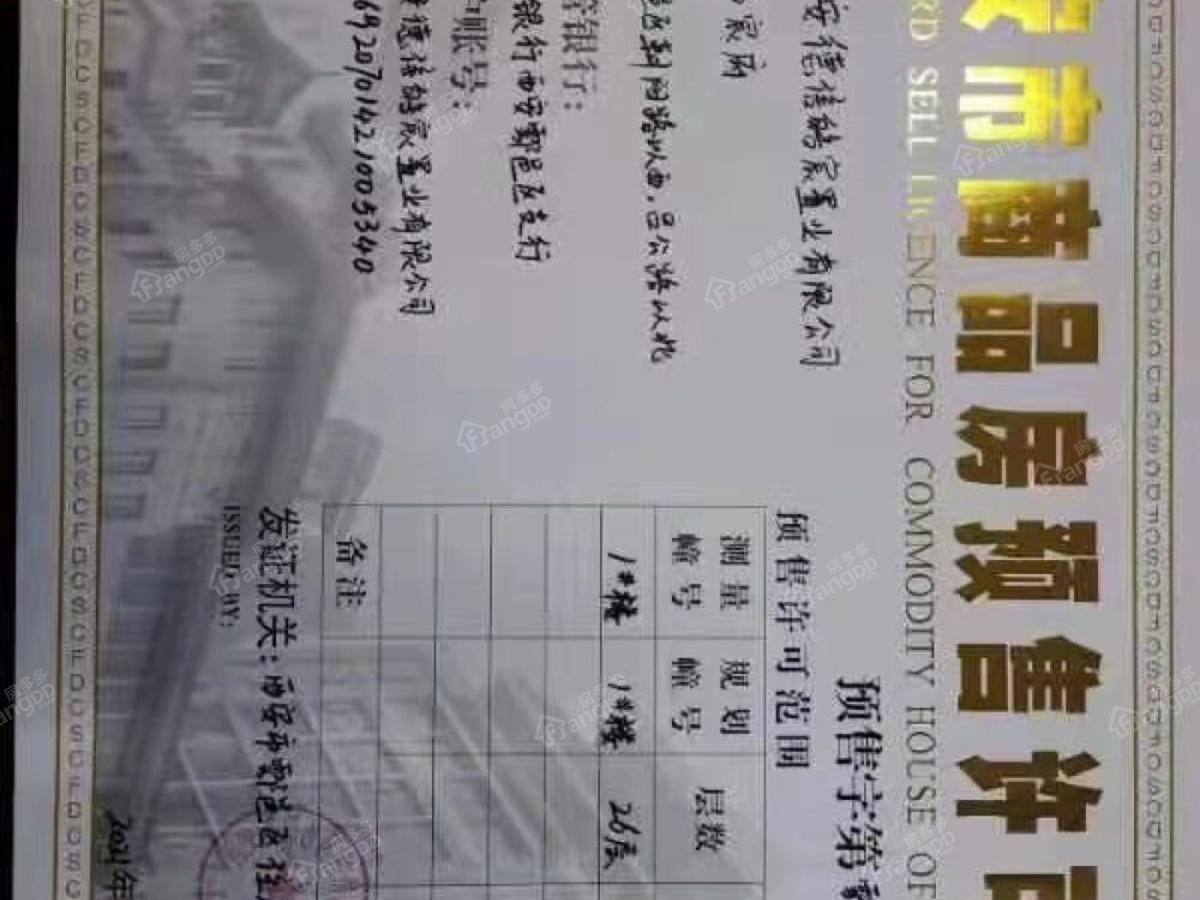 市商品房预售许可
RD SELL LICENCE FOR COMMODITY HOUSE OF
预售字第鄠
安德信皓宸置业有限公司
宸府
路以西,吕公路以北
管银行:
银行西安鄠邑区支行
账号:
德信皓宸置业有限公司
6920701421005340
预售许可范围
测量幢号 规划幢号 层数
1#楼 1#楼 26层
备注
发证机关:西安市鄠邑区住
ISSUED BY:
2021年
房多多
Fangdd